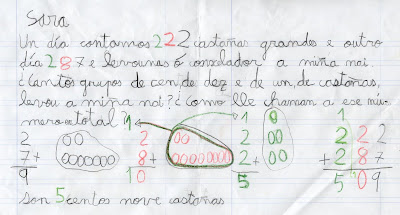 Sara
Un día contamos 222 castañas grandes e outro
día 287 e levounas ó conxelador a miña nai.
¿Cantos grupos de cen, de dez e de un, de castañas,
levou a miña nai? ¿e como lle chaman a ese nú-
mero total?
1 1 1
2 2 2 222
7+ 8+ 2+ +287
9 10 5 509
Son 5centos nove castañas